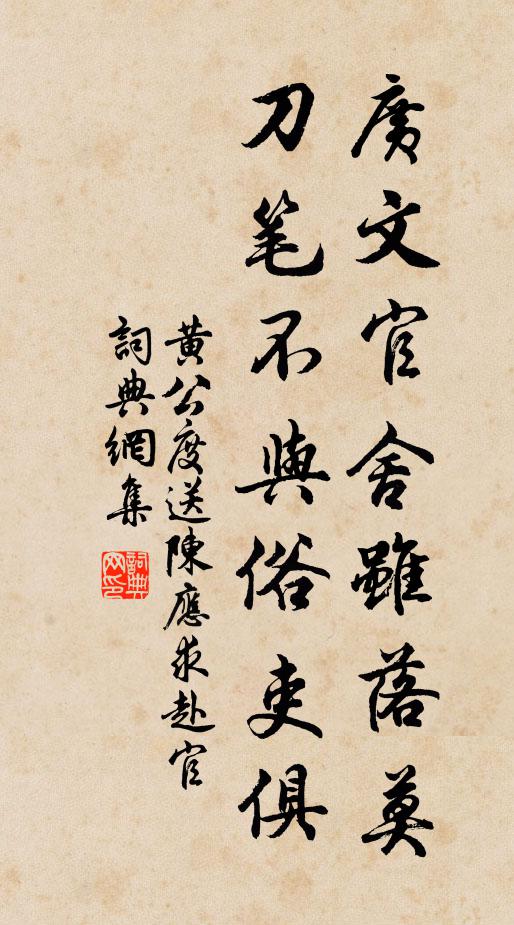 廣文官舍雖落莫
刀笔不與俗吏俱
黄公度送陳應求赴官
詞典網集
詞典网印